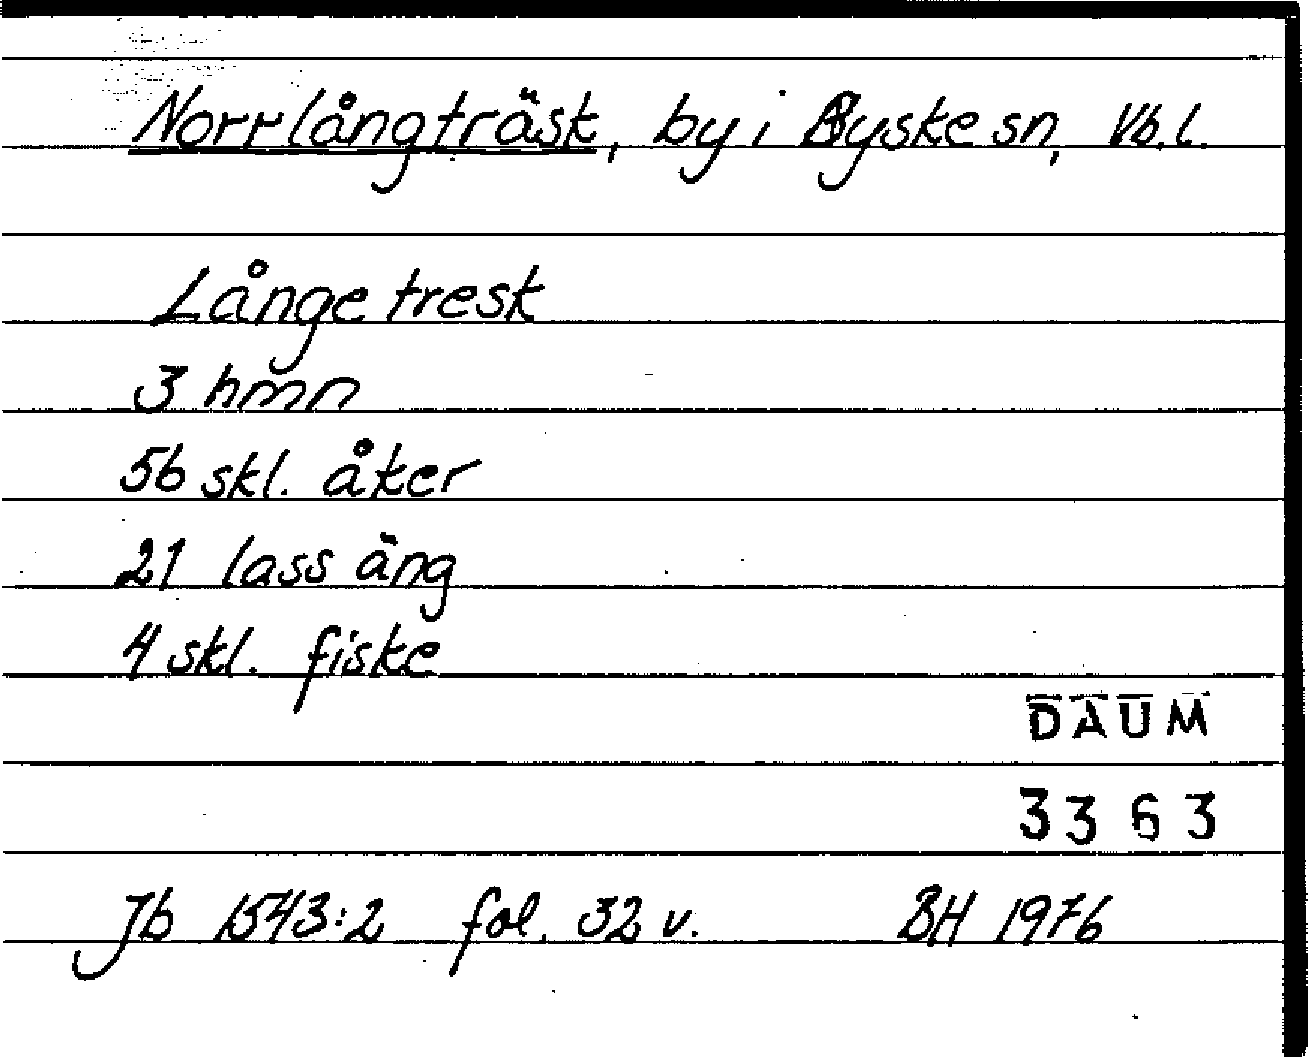 Norrlångträsk, by i Byske sn, Vb. l.
Långe tresk
3 hmn
56 skl. åker
21 lass äng
4 skl. fiske
DAUM
3363
Jb 1543:2 fol. 32 v. BH 1976